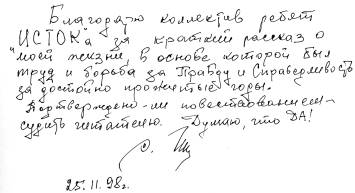 Благодарю коллектив ребят
"ИСТОК"а за краткий рассказ о
моей жизни, в основе которой был
труд и борьба за Правду и Справедливость
за достойно прожитые годы.
Подтверждено-ли повествованием-
судить читателю. Думаю, что ДА!
25.11.98г.